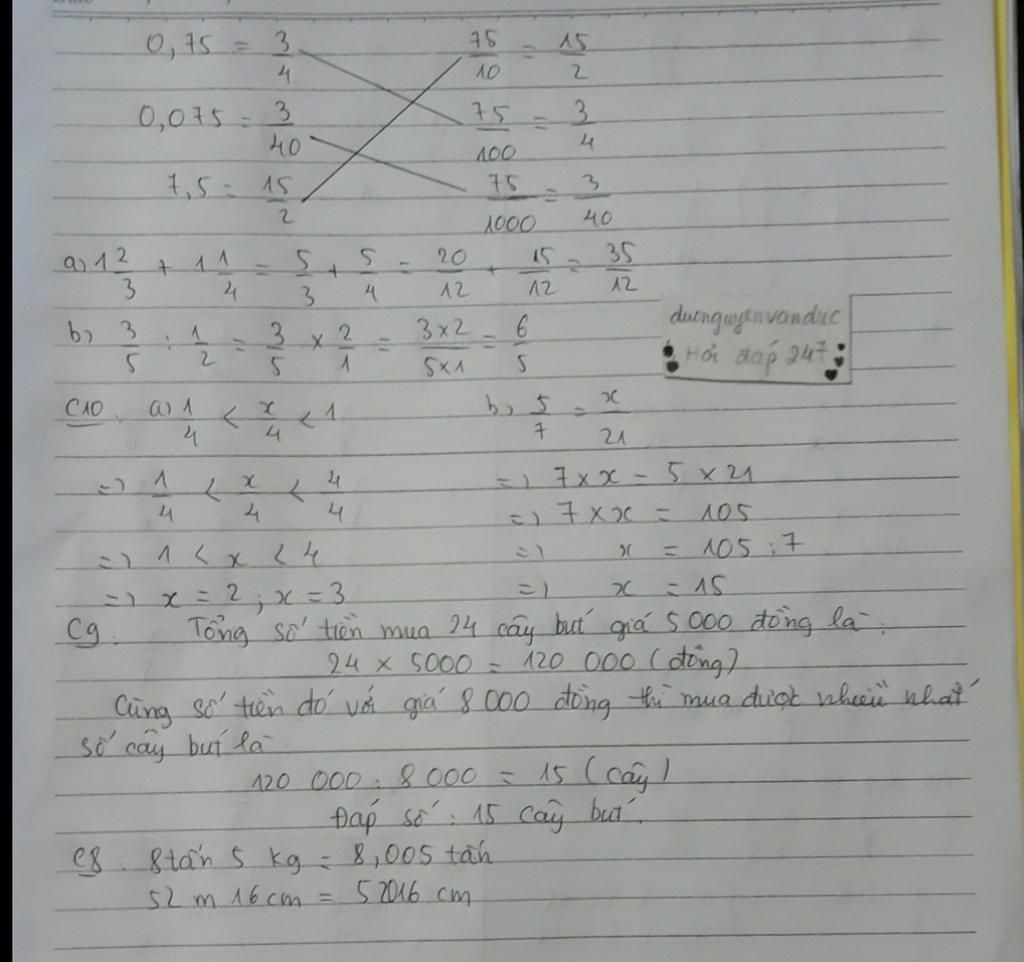 0,75 = 3/4    75/10 = 15/2
0,075 = 3/40    75/100 = 3/4
7,5 = 15/2    75/1000 = 3/40
a) 1 2/3 + 1 1/4 = 5/3 + 5/4 = 20/12 + 15/12 = 35/12
b) 3/5 : 1/2 = 3/5 × 2/1 = 3×2/5×1 = 6/5
ducnguyenvanduc
Hỏi đáp 247
C10. a) 1/4 < x/4 < 1    b) 5/7 = x/21
=) 1/4 < x/4 < 4/4    =) 7 × x = 5 × 21
=) 7 × x = 105
=) 1 < x < 4    =) x = 105 : 7
=) x = 2 ; x = 3    =) x = 15
C9. Tổng số tiền mua 24 cây bút giá 5000 đồng là:
24 × 5000 = 120 000 (đồng)
Cũng số tiền đó với giá 8 000 đồng thì mua được nhiều nhất
số cây bút là
120 000 : 8 000 = 15 (cây)
Đáp số : 15 cây bút.
C8. 8 tấn 5 kg = 8,005 tấn
52 m 16 cm = 52016 cm